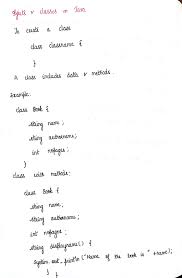 Object & classes in Java
To create a class
class classname {
}
A class includes data & methods.
Example:
class Book {
string name;
string authorname;
int nopages;
}
class with methods:
class Book {
string name;
string authorname;
int nopages;
string displayname() {
System.out.println ("Name of the book is " +name);
}
}